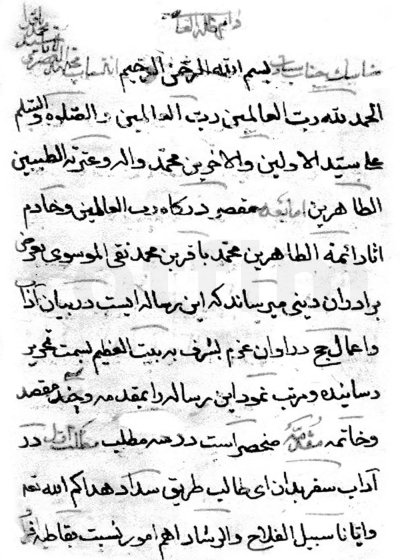 بسم الله الرحمن الرحیم
الحمد لله رب العالمین رب العالمین والصلوة والسلام
علی سید الاولین والاخرین محمد واله وعترته الطیبین
الطاهرین اما بعد مقصر درکاه رب العالمین وخادم
اثار ائمة الطاهرین محمد باقر بن محمد نقی الموسوی بعرض
برادران دینی میرساند که این رساله ایست در بیان آداب
واعمال حج در اوان عزم بشرف به بیت العظیم بسمت تحریر
رسانیده ومرتب نمود این رساله را بمقدمه وچند مقصد
وخاتمه مقدمه منحصر است در سه مطلب مطلب اول در
آداب سفر بدان ای طالب طریق سداد هداکم الله تعه
وایانا سبیل الفلاح والرشاد اهم امور نسبت بقاطبه